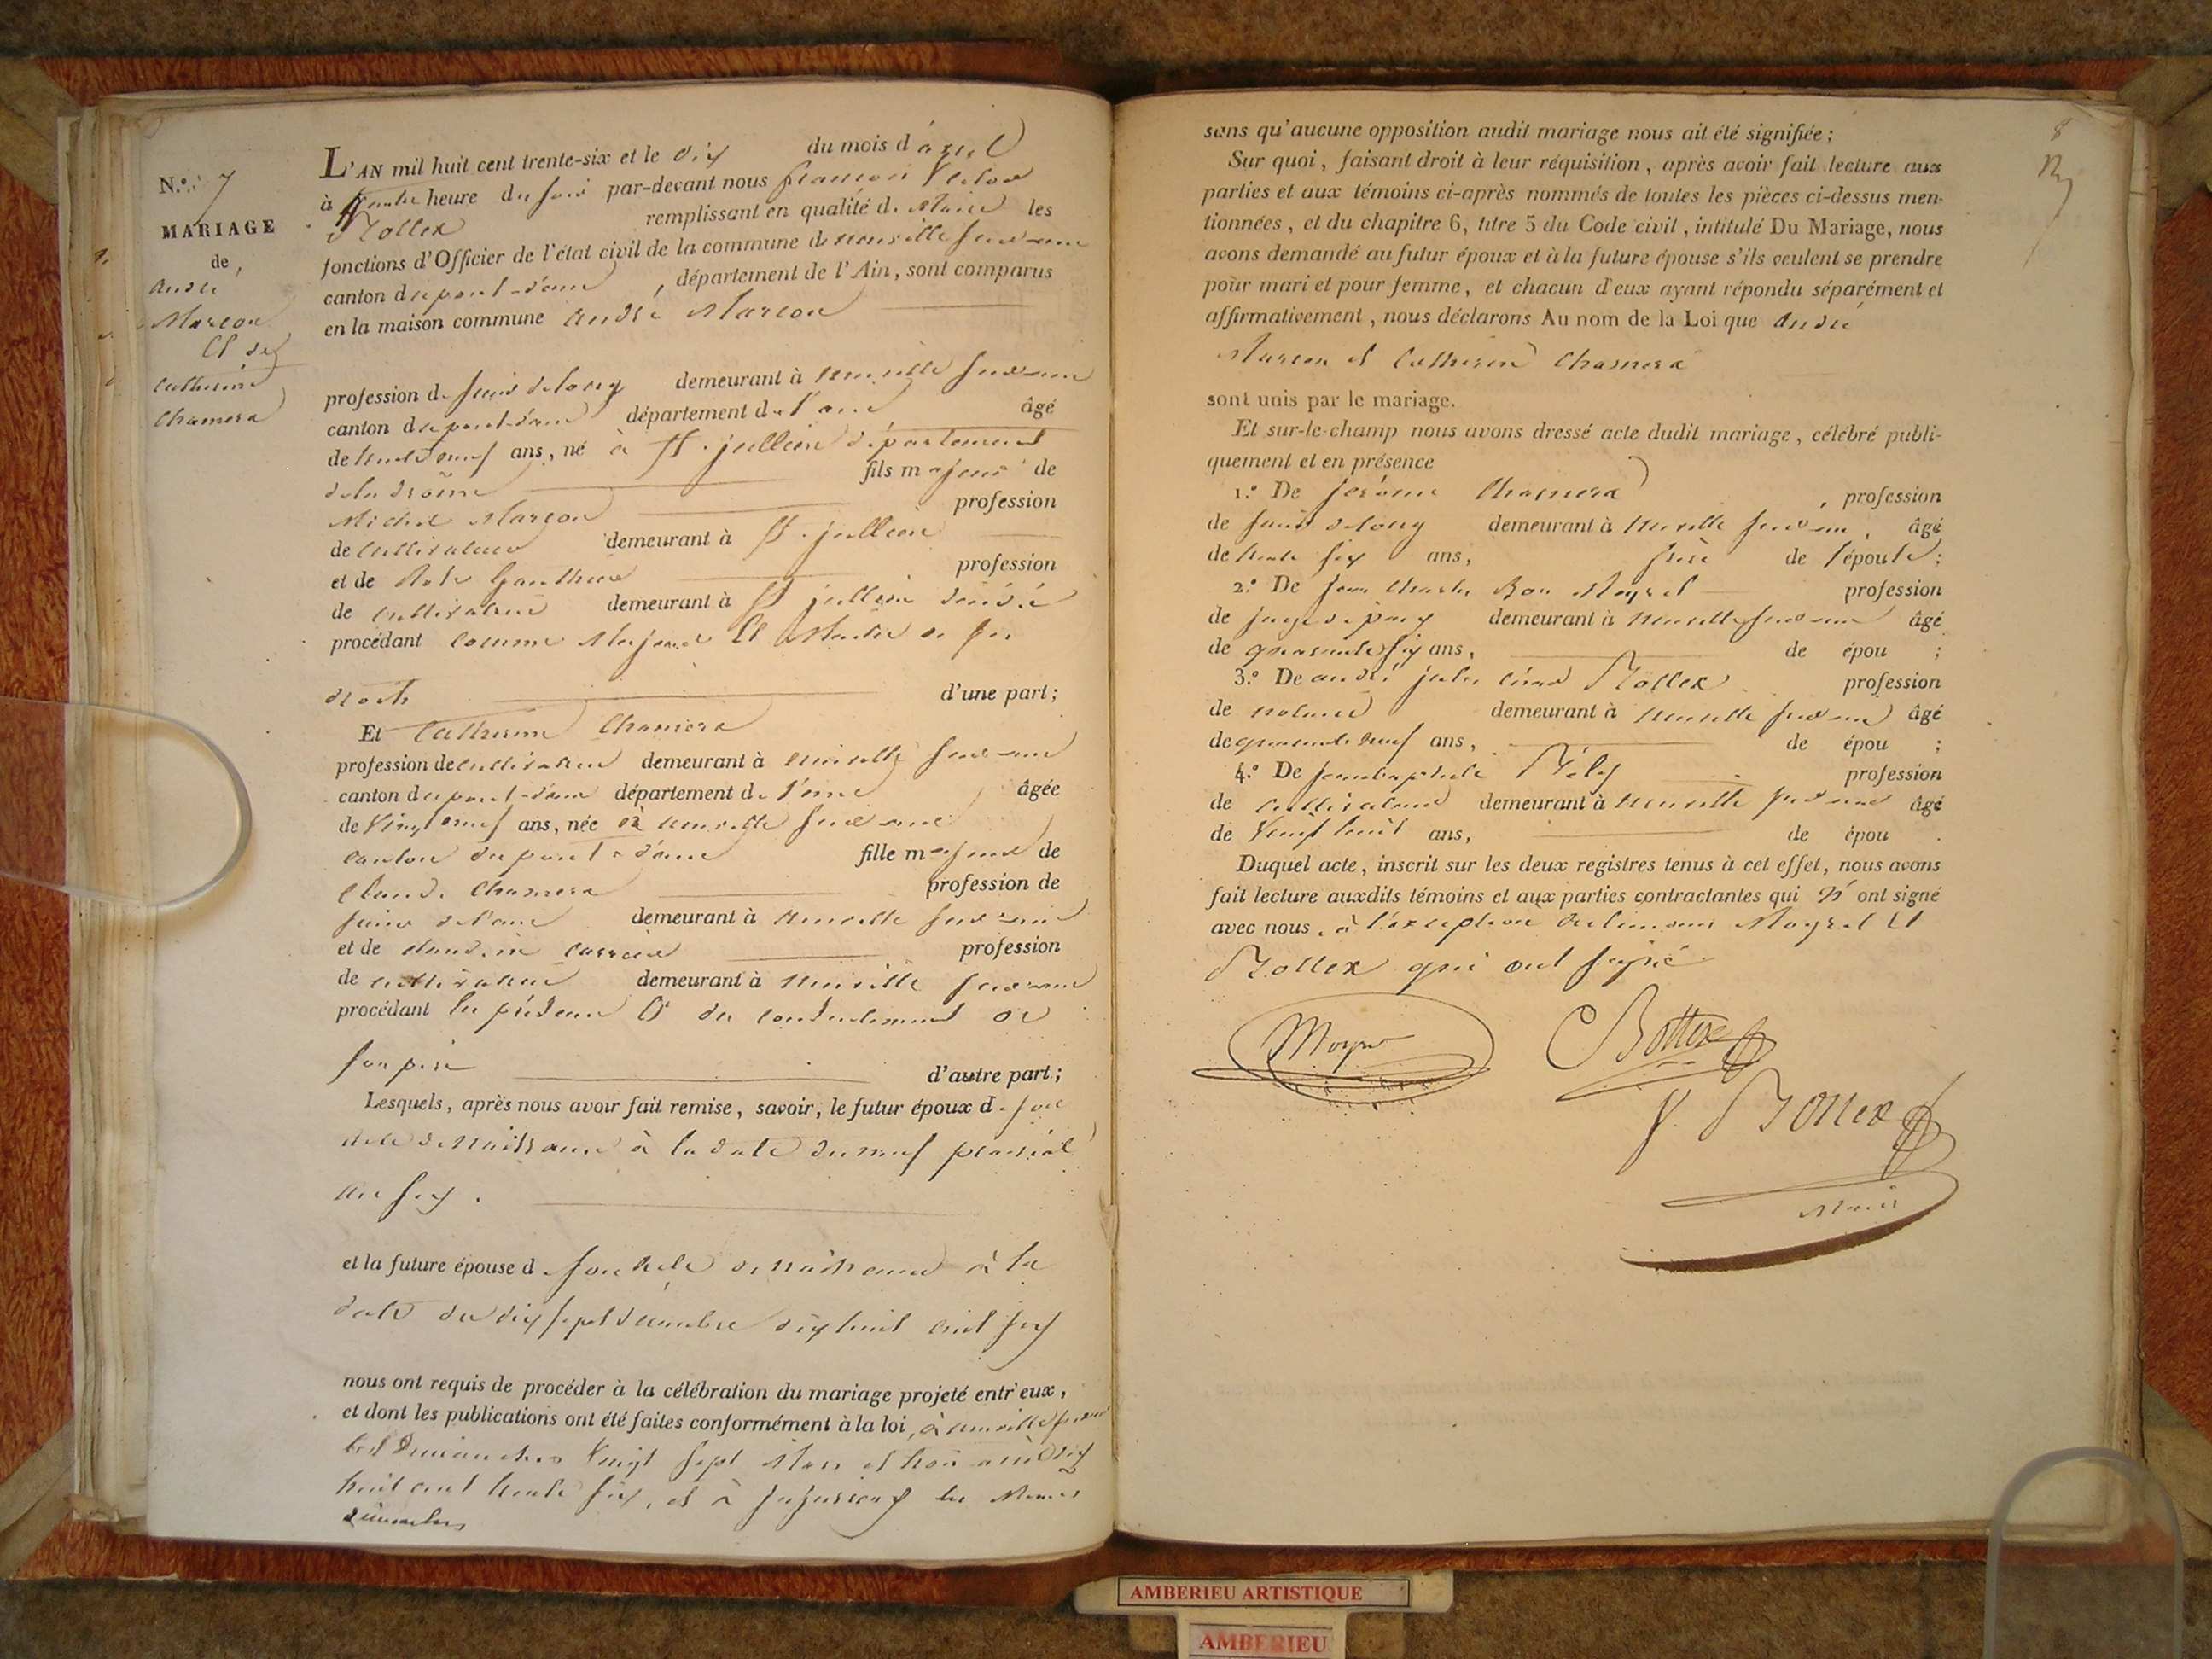 N.º 7
MARIAGE
de
andré
Marcon
Et de
catherine
Chamera
L'AN mil huit cent trente-six et le dix du mois d'avril
à quatre heure du soir par-devant nous françois Victor
Bottex remplissant en qualité de Maire les
fonctions d'Officier de l'état civil de la commune de neuville sur ain
canton du pont-d'ain, département de l'Ain, sont comparus
en la maison commune andré Marcon
profession de demeurant à neuville sur ain
canton du pont-d'ain département de l'ain âgé
de trente neuf ans, né à St. jullien département
de la drôme fils majeur de
Michel Marcon profession
de cultivateur demeurant à St. jullien
et de profession
de cultivateur demeurant à St jullien
procédant comme Majeur Et Maitre de ses
droits d'une part;
Et Catherine Chamera
profession de cultivateur demeurant à neuville sur ain
canton du pont-d'ain département de l'ain âgée
de Vingt neuf ans, née à neuville sur ain
canton du pont-d'ain fille majeure de
Claude Chamera profession de
demeurant à neuville sur ain
et de claudine profession
de cultivateur demeurant à neuville sur ain
procédant Et du consentement de
son père d'autre part;
Lesquels, après nous avoir fait remise, savoir, le futur époux de son
acte de Naissance à la date du neuf prairial
an six.
et la future épouse de son acte de naissance à la
date du dix sept décembre dix huit cent six
nous ont requis de procéder à la célébration du mariage projeté entr'eux,
et dont les publications ont été faites conformément à la loi, à neuville sur ain
les Dimanches Vingt sept Mars et trois avril dix
huit cent trente six, et à jujurieux les Mêmes
dimanches
8
sans qu'aucune opposition audit mariage nous ait été signifiée;
Sur quoi, faisant droit à leur réquisition, après avoir fait lecture aux
parties et aux témoins ci-après nommés de toutes les pièces ci-dessus men-
tionnées, et du chapitre 6, titre 5 du Code civil, intitulé Du Mariage, nous
avons demandé au futur époux et à la future épouse s'ils veulent se prendre
pour mari et pour femme, et chacun d'eux ayant répondu séparément et
affirmativement, nous déclarons Au nom de la Loi que André
Marcon et Catherine Chamera
sont unis par le mariage.
Et sur-le-champ nous avons dressé acte dudit mariage, célébré publi-
quement et en présence
1.º De jerôme Chamera, profession
de demeurant à Neuville sur ain, âgé
de trente six ans, frère de l'épouse;
2.º De Jean Charles Bon Moyret profession
de juge de paix demeurant à Neuville sur ain âgé
de quarante six ans, de épou ;
3.º De andré jules césar Bottex profession
de notaire demeurant à neuville sur ain âgé
de quarante neuf ans, de épou ;
4.º De jean baptiste profession
de cultivateur demeurant à neuville sur ain âgé
de Vingt huit ans, de épou .
Duquel acte, inscrit sur les deux registres tenus à cet effet, nous avons
fait lecture auxdits témoins et aux parties contractantes qui n'ont signé
avec nous, à l'exception des témoins Moyret Et
Bottex qui ont signé
Moyret
C Bottex
V. Bottex
Maire
AMBERIEU ARTISTIQUE
AMBERIEU